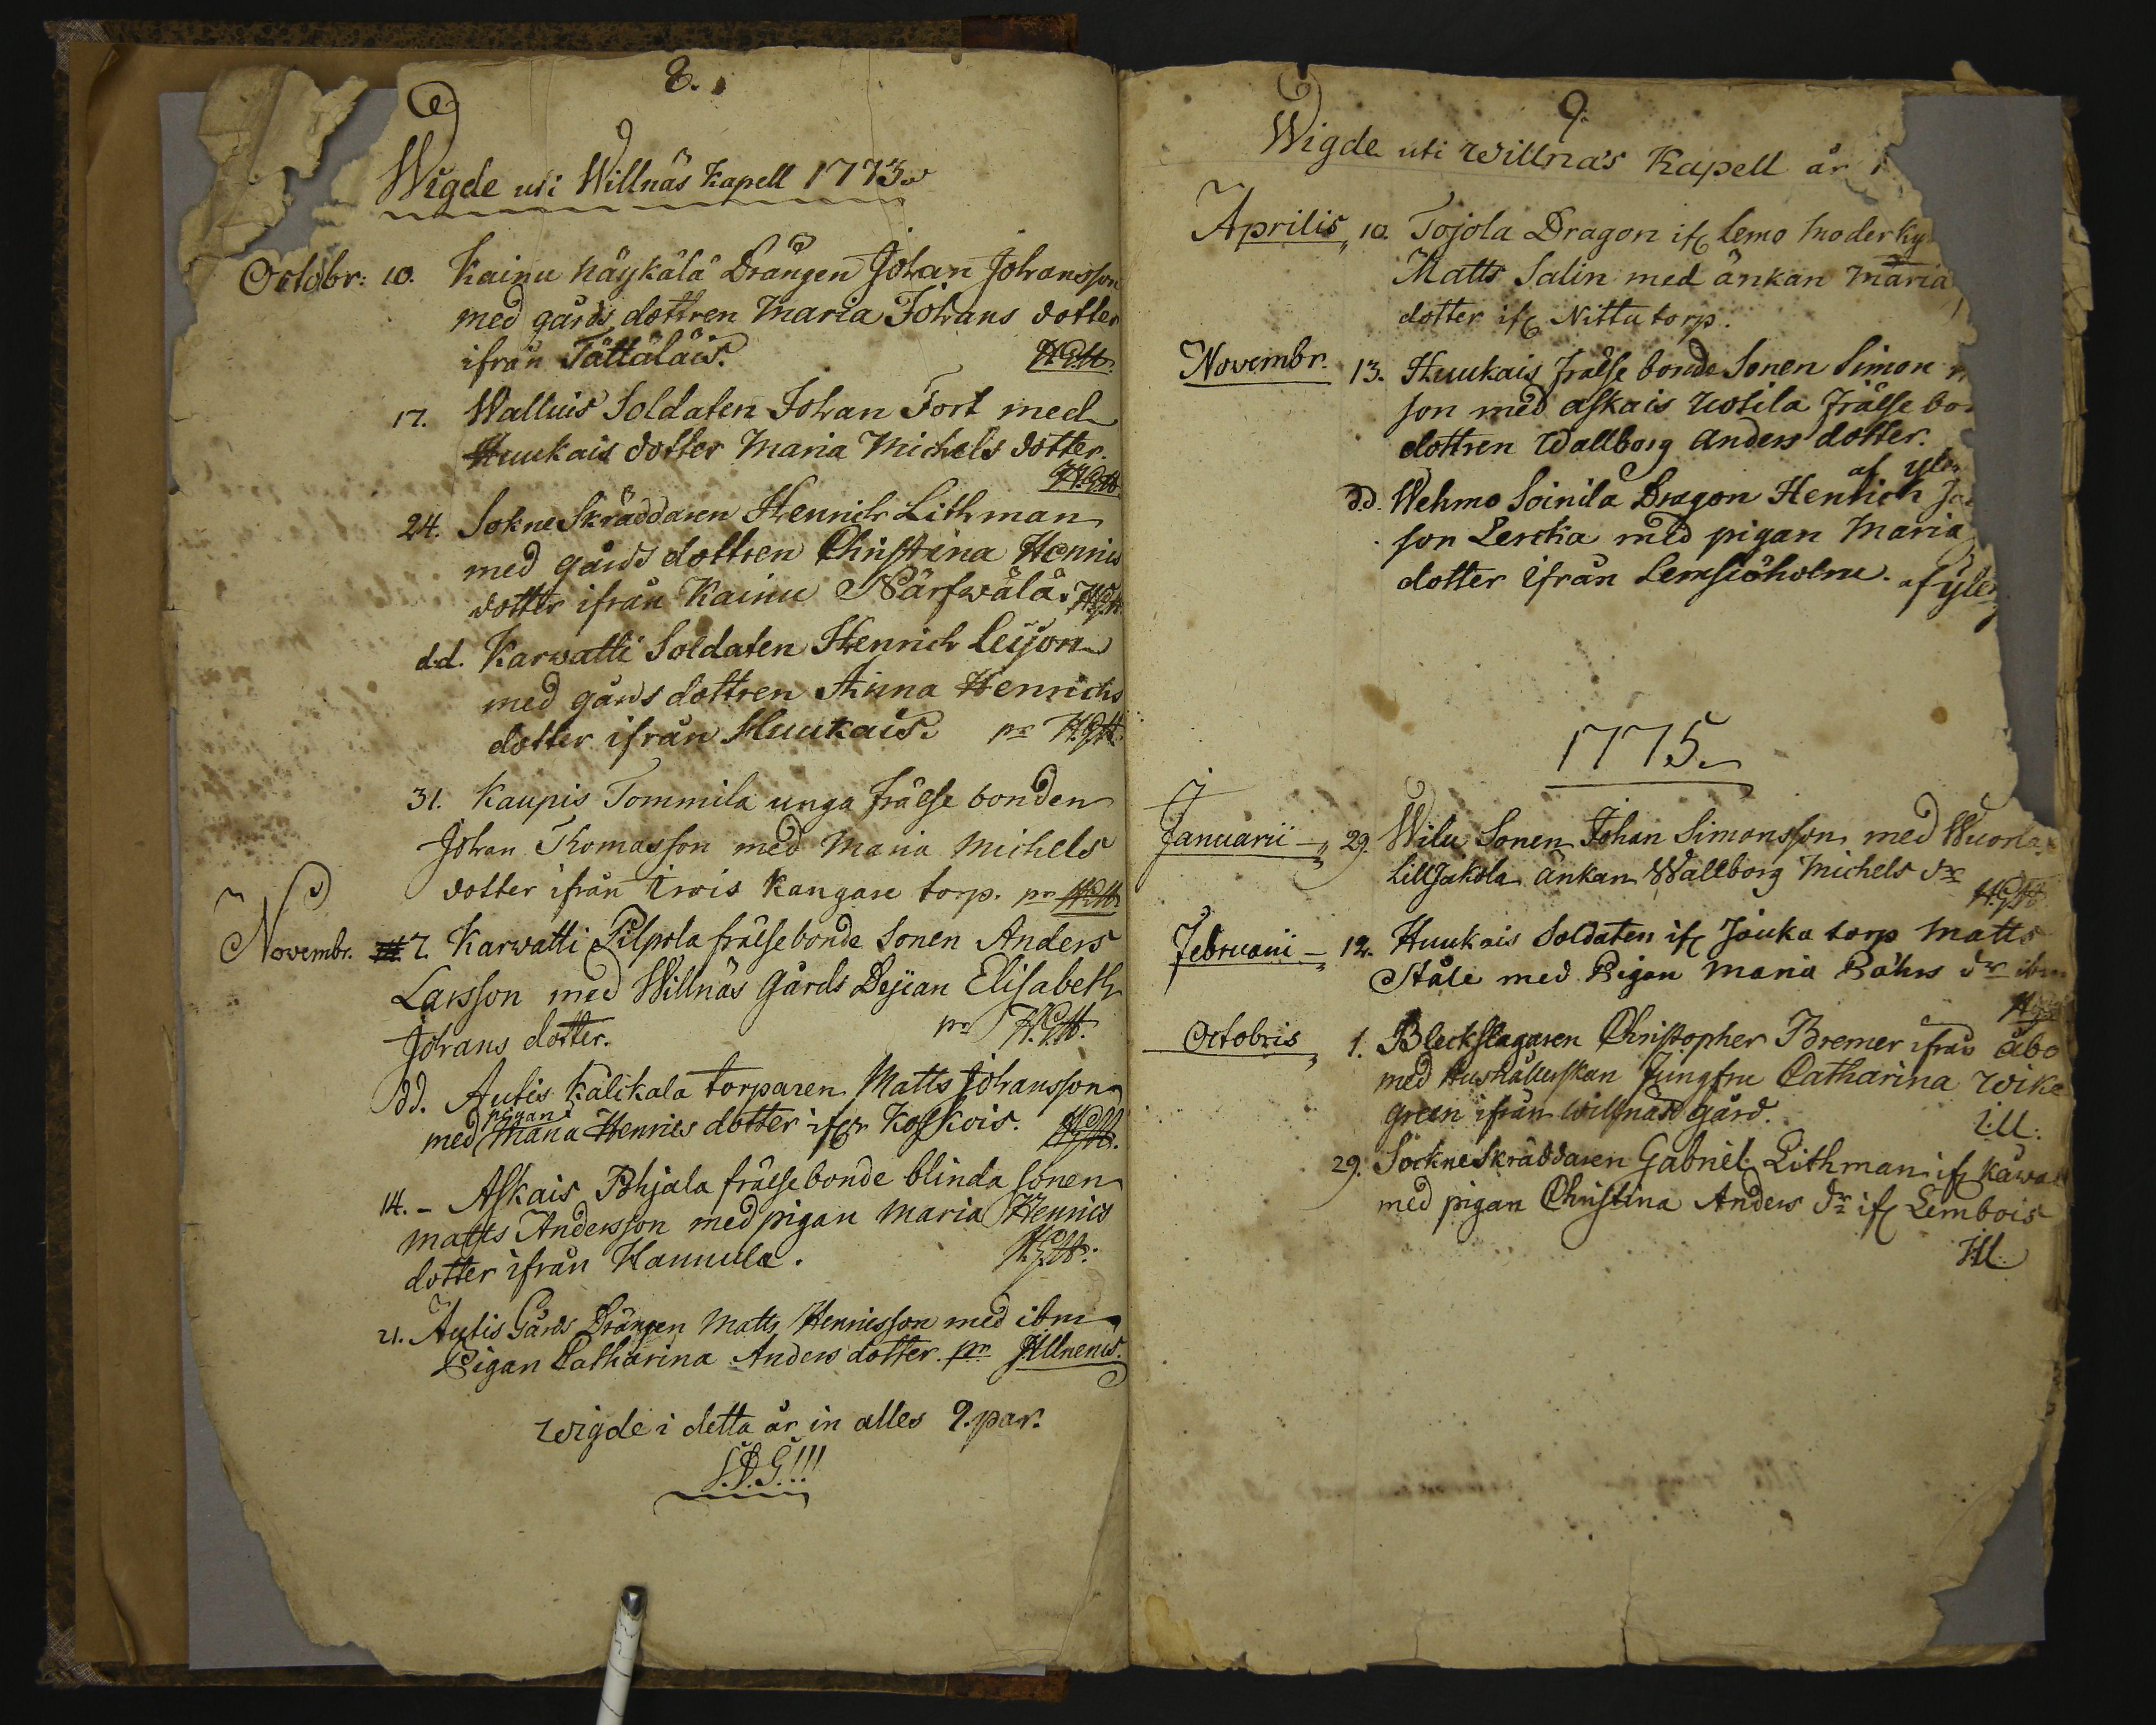 8.
Wigde uti Willnäs Kapell 1773.
Octobr: 10. Kainu Näykälä Drängen Johan Johansson
med gårds dottren Maria Johans dotter
ifrån Tättäläis.
17. Walluis Soldaten Johan Fort med
Huukais dotter Maria Michels dotter.
24. Sokne Skräddaren Henrich Lithman
med gårds dottren Christina Henrics
dotter ifrån Kainu Närfwälä.
d.d. Karvatti Soldaten Henrich Leijon
med gårds dottren Anna Henrichs
dotter ifrån Huukais. pr
31. Kaupis Tommila unga frälse bonden
Johan Thomasson med Maria Michels
dotter ifrån Kangare torp. pr
Novembr. 7. Karvatti Pilpola frälsebonde Sonen Anders
Larsson med Willnäs Gårds Dejian Elisabeth
Johans dotter. pr
dd. Autis Kälikala torparen Matts Johansson
pigan
med Maria Henrics dotter ifr Koskois.
14. - Askais Pohjala frälsebonde blinda sonen
Matts Andersson med pigan Maria Henrics
dotter ifrån Hannula.
21. Autis Gårds Drängen Matts Henricsson med ibm
Pigan Catharina Anders dotter. pr
Wigde i detta år in alles 9. par.
S.D.G!!!
9.
Wigde uti Willnäs Kapell år 1
Aprilis 10. Tojola Dragon if Lemo Moderky
Matts Salin med änkan Maria
dotter if Nittu torp.
Novembr. 13. Huukais frälse bonde Sonen Simon
son med Askais Uotila frälse bo
dottren Wallborg Anders dotter.
af
dd. Wehmo Soinila Dragon Henrich
son Lercka med pigan Maria
dotter ifrån Lemsiöholm. af
1775.
Januarii - 29. Wilu Sonen Johan Simonsson med Wuorla
LillJakola änkan Wallborg Michels dr
Februarii - 12. Huukais Soldaten if Jouka torp Matts
Ståle med Pigan Maria Påhls dr ibm
Octobris 1. Bleckslagaren Christopher Bremer ifrån Åbo
med Hushållerskan Jungfru Catharina Wike
green ifrån Willnäs gård.
29. Sockne Skräddaren Gabriel Lithman if
med pigan Christina Anders dr if Lembois